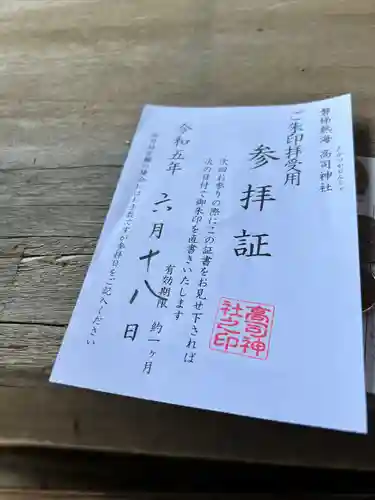 磐梯熱海 高司神社
たかつかさじんじゃ
ご朱印拝受用
参拝証
次回お参りの際にこの証書をお見せ下されば
次の日付で御朱印を直書きいたします
有効期限 約一ヶ月
令和五年 六月十八日
お手数ですが参拝日をご記入ください
高司神
社之印